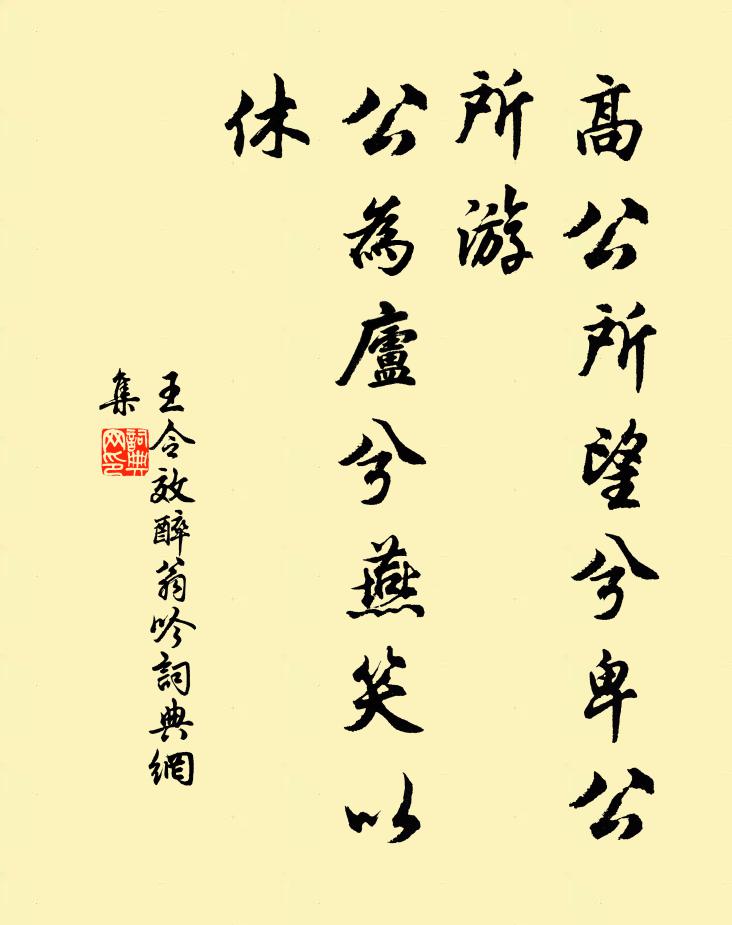 高公所望兮卑公
所游
公為廬兮燕笑以
休
王令效醉翁吟詞典網
集
詞典
网印